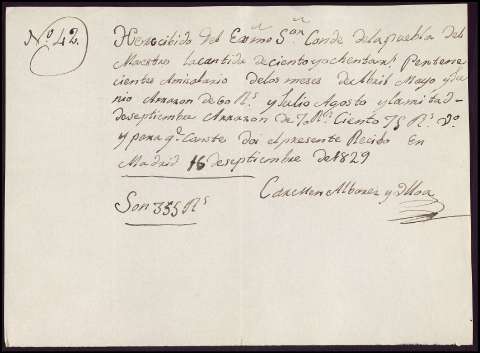 Nº 42.
He rrecibido del Exmo Sor Conde de la puebla del
Maestro la cantida de ciento y ochenta rs pertene
cientes Amisalario de los meses de Abril Mayo y Ju
nio Arrazon de 60 Rs y Julio Agosto y la mitad
de septiembre Arrazon de 70 Rs Ciento 75 Rs
y para q. Conste doi el presente Recibo En
Madrid 16 de septiembre de 1829
Carmen Albarez y Ulloa
Son 355 Rs